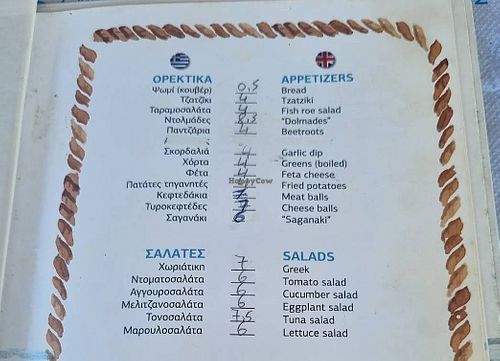 ΟΡΕΚΤΙΚΑ APPETIZERS
Ψωμί (κουβέρ) 0,5 Bread
Τζατζίκι 4 Tzatziki
Ταραμοσαλάτα 4 Fish roe salad
Ντολμάδες "Dolmades"
Παντζάρια 4 Beetroots
Σκορδαλιά 4 Garlic dip
Χόρτα 4 Greens (boiled)
Φέτα 4 Feta cheese
Πατάτες τηγανητές 4 Fried potatoes
Κεφτεδάκια 7 Meat balls
Τυροκεφτέδες 7 Cheese balls
Σαγανάκι 6 "Saganaki"
HappyCow
ΣΑΛΑΤΕΣ SALADS
Χωριάτικη 7 Greek
Ντοματοσαλάτα 6 Tomato salad
Αγγουροσαλάτα 6 Cucumber salad
Μελιτζανοσαλάτα 6 Eggplant salad
Τονοσαλάτα 7,5 Tuna salad
Μαρουλοσαλάτα 6 Lettuce salad